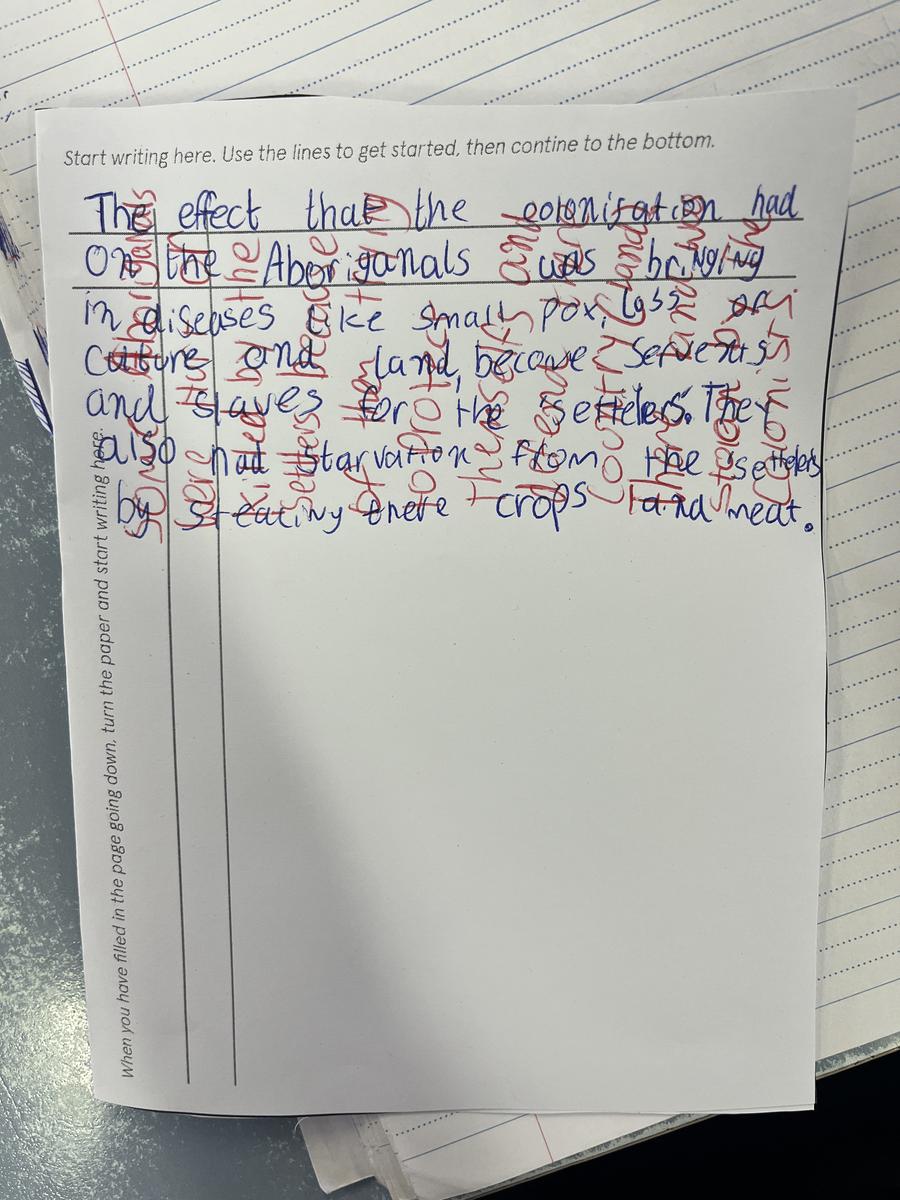 Start writing here. Use the lines to get started, then contine to the bottom.
The effect that the colonisation had
on the Aboriganals was bringing
in diseases like small pox, loss of
culture and land, become servents
and slaves for the settelers. They
also had starvation from the settelers
by steating there crops and meat.
When you have filled in the page going down, turn the paper and start writing here.
some Aboriganals
were in
killed by the
settlers because
of they
to protect
themselfs and
defend
country land
They
stolen
colonist